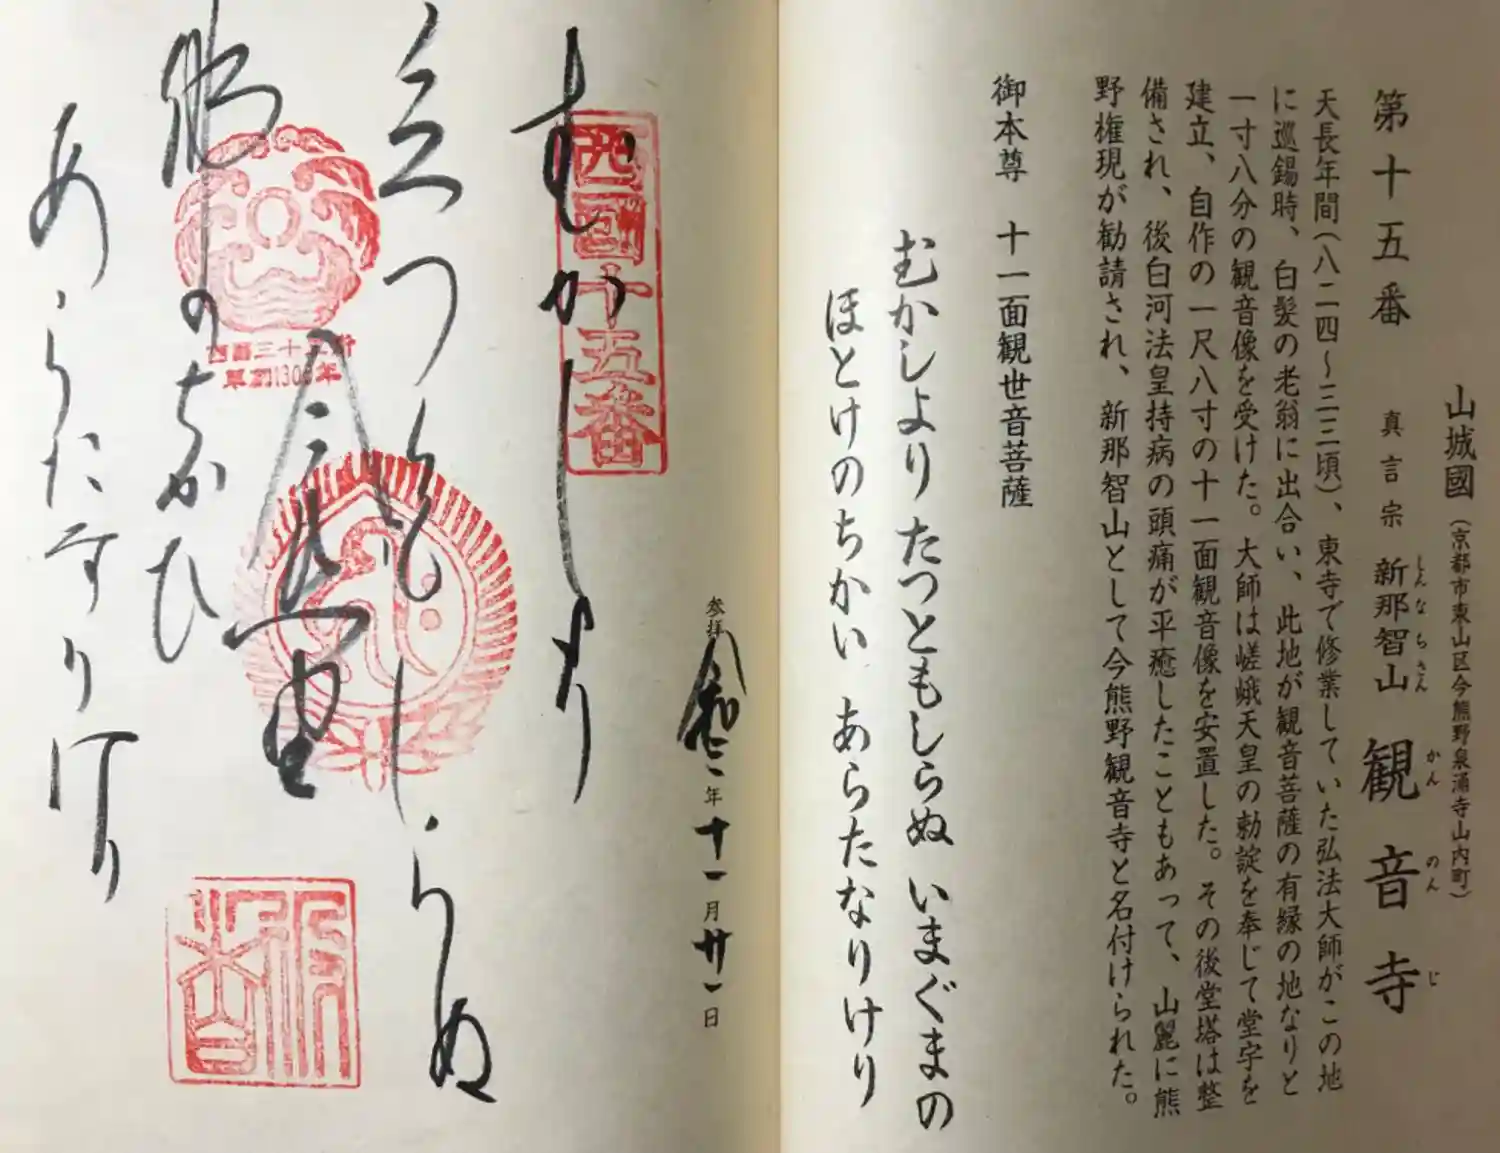 山城國（京都市東山区今熊野泉涌寺山内町）
第十五番　真言宗　新那智山　観音寺
しんなちさん　かんのんじ
天長年間（八二四～三三頃）、東寺で修業していた弘法大師がこの地
に巡錫時、白髪の老翁に出合い、此地が観音菩薩の有縁の地なりと
一寸八分の観音像を受けた。大師は嵯峨天皇の勅諚を奉じて堂宇を
建立、自作の一尺八寸の十一面観音像を安置した。その後堂塔は整
備され、後白河法皇持病の頭痛が平癒したこともあって、山麓に熊
野権現が勧請され、新那智山として今熊野観音寺と名付けられた。
御本尊　十一面観世音菩薩
むかしより　たつともしらぬ　いまぐまの
ほとけのちかい　あらたなりけり
参拝　令和二年十一月廿一日
西國十五番
むかしより
立つともしらぬ
今熊野
仏のちかひ
あらたなりけり
西国三十三所
草創1300年